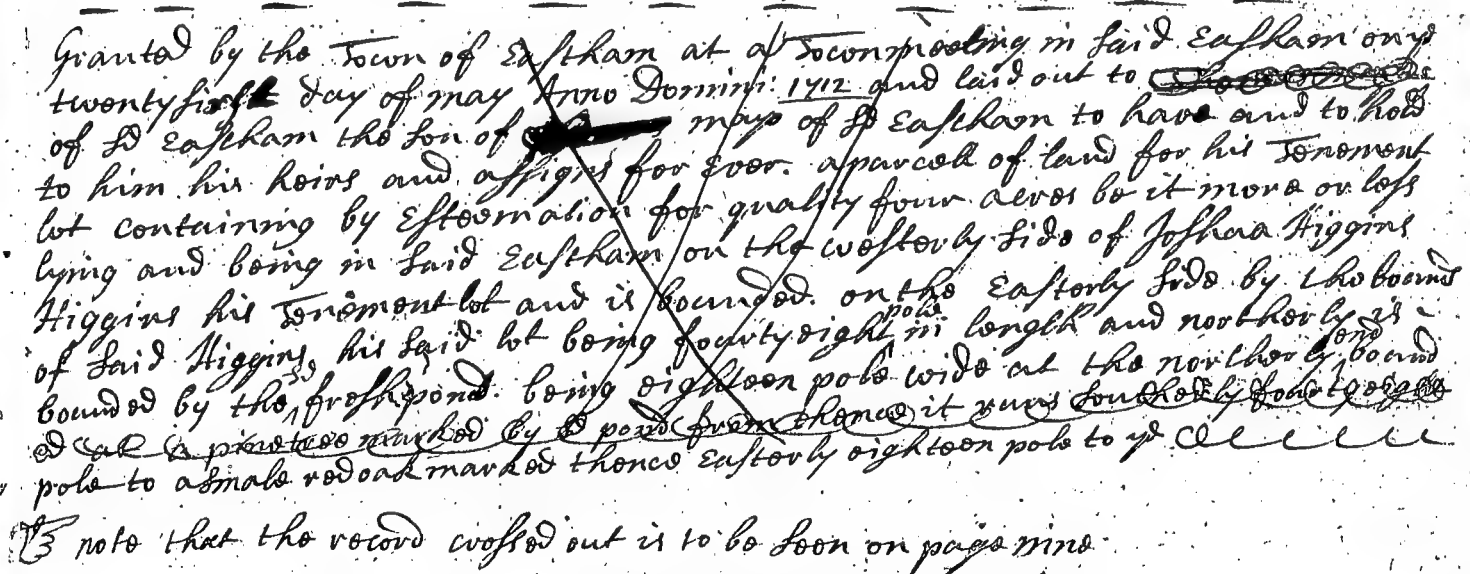 Granted by the Town of Eastham at a Townmeeting in said Eastham on ye
twentyfirst day of may Anno Domini: 1712 and laid out to
of sd Eastham the son of mayo of sd Eastham to have and to hold
to him his heirs and assigns for Ever. a parcell of land for his Tenement
lot containing by Esteemation for quality four acres be it more or less
lying and being in said Eastham on the westerly side of Joshua Higgins
Higgins his Tenement lot and is bounded. on the Easterly side by the bounds
of said Higgins his said lot being fourty eight pole in length and northerly is
bounded by the sd fresh pond. being eighteen pole wide at the northerly end bound
ed at a pinetree marked by ye pond from thence it runs southerly fourty eight
pole to a smale redoak marked thence Easterly eighteen pole to ye
note that the record crossed out is to be seen on page nine